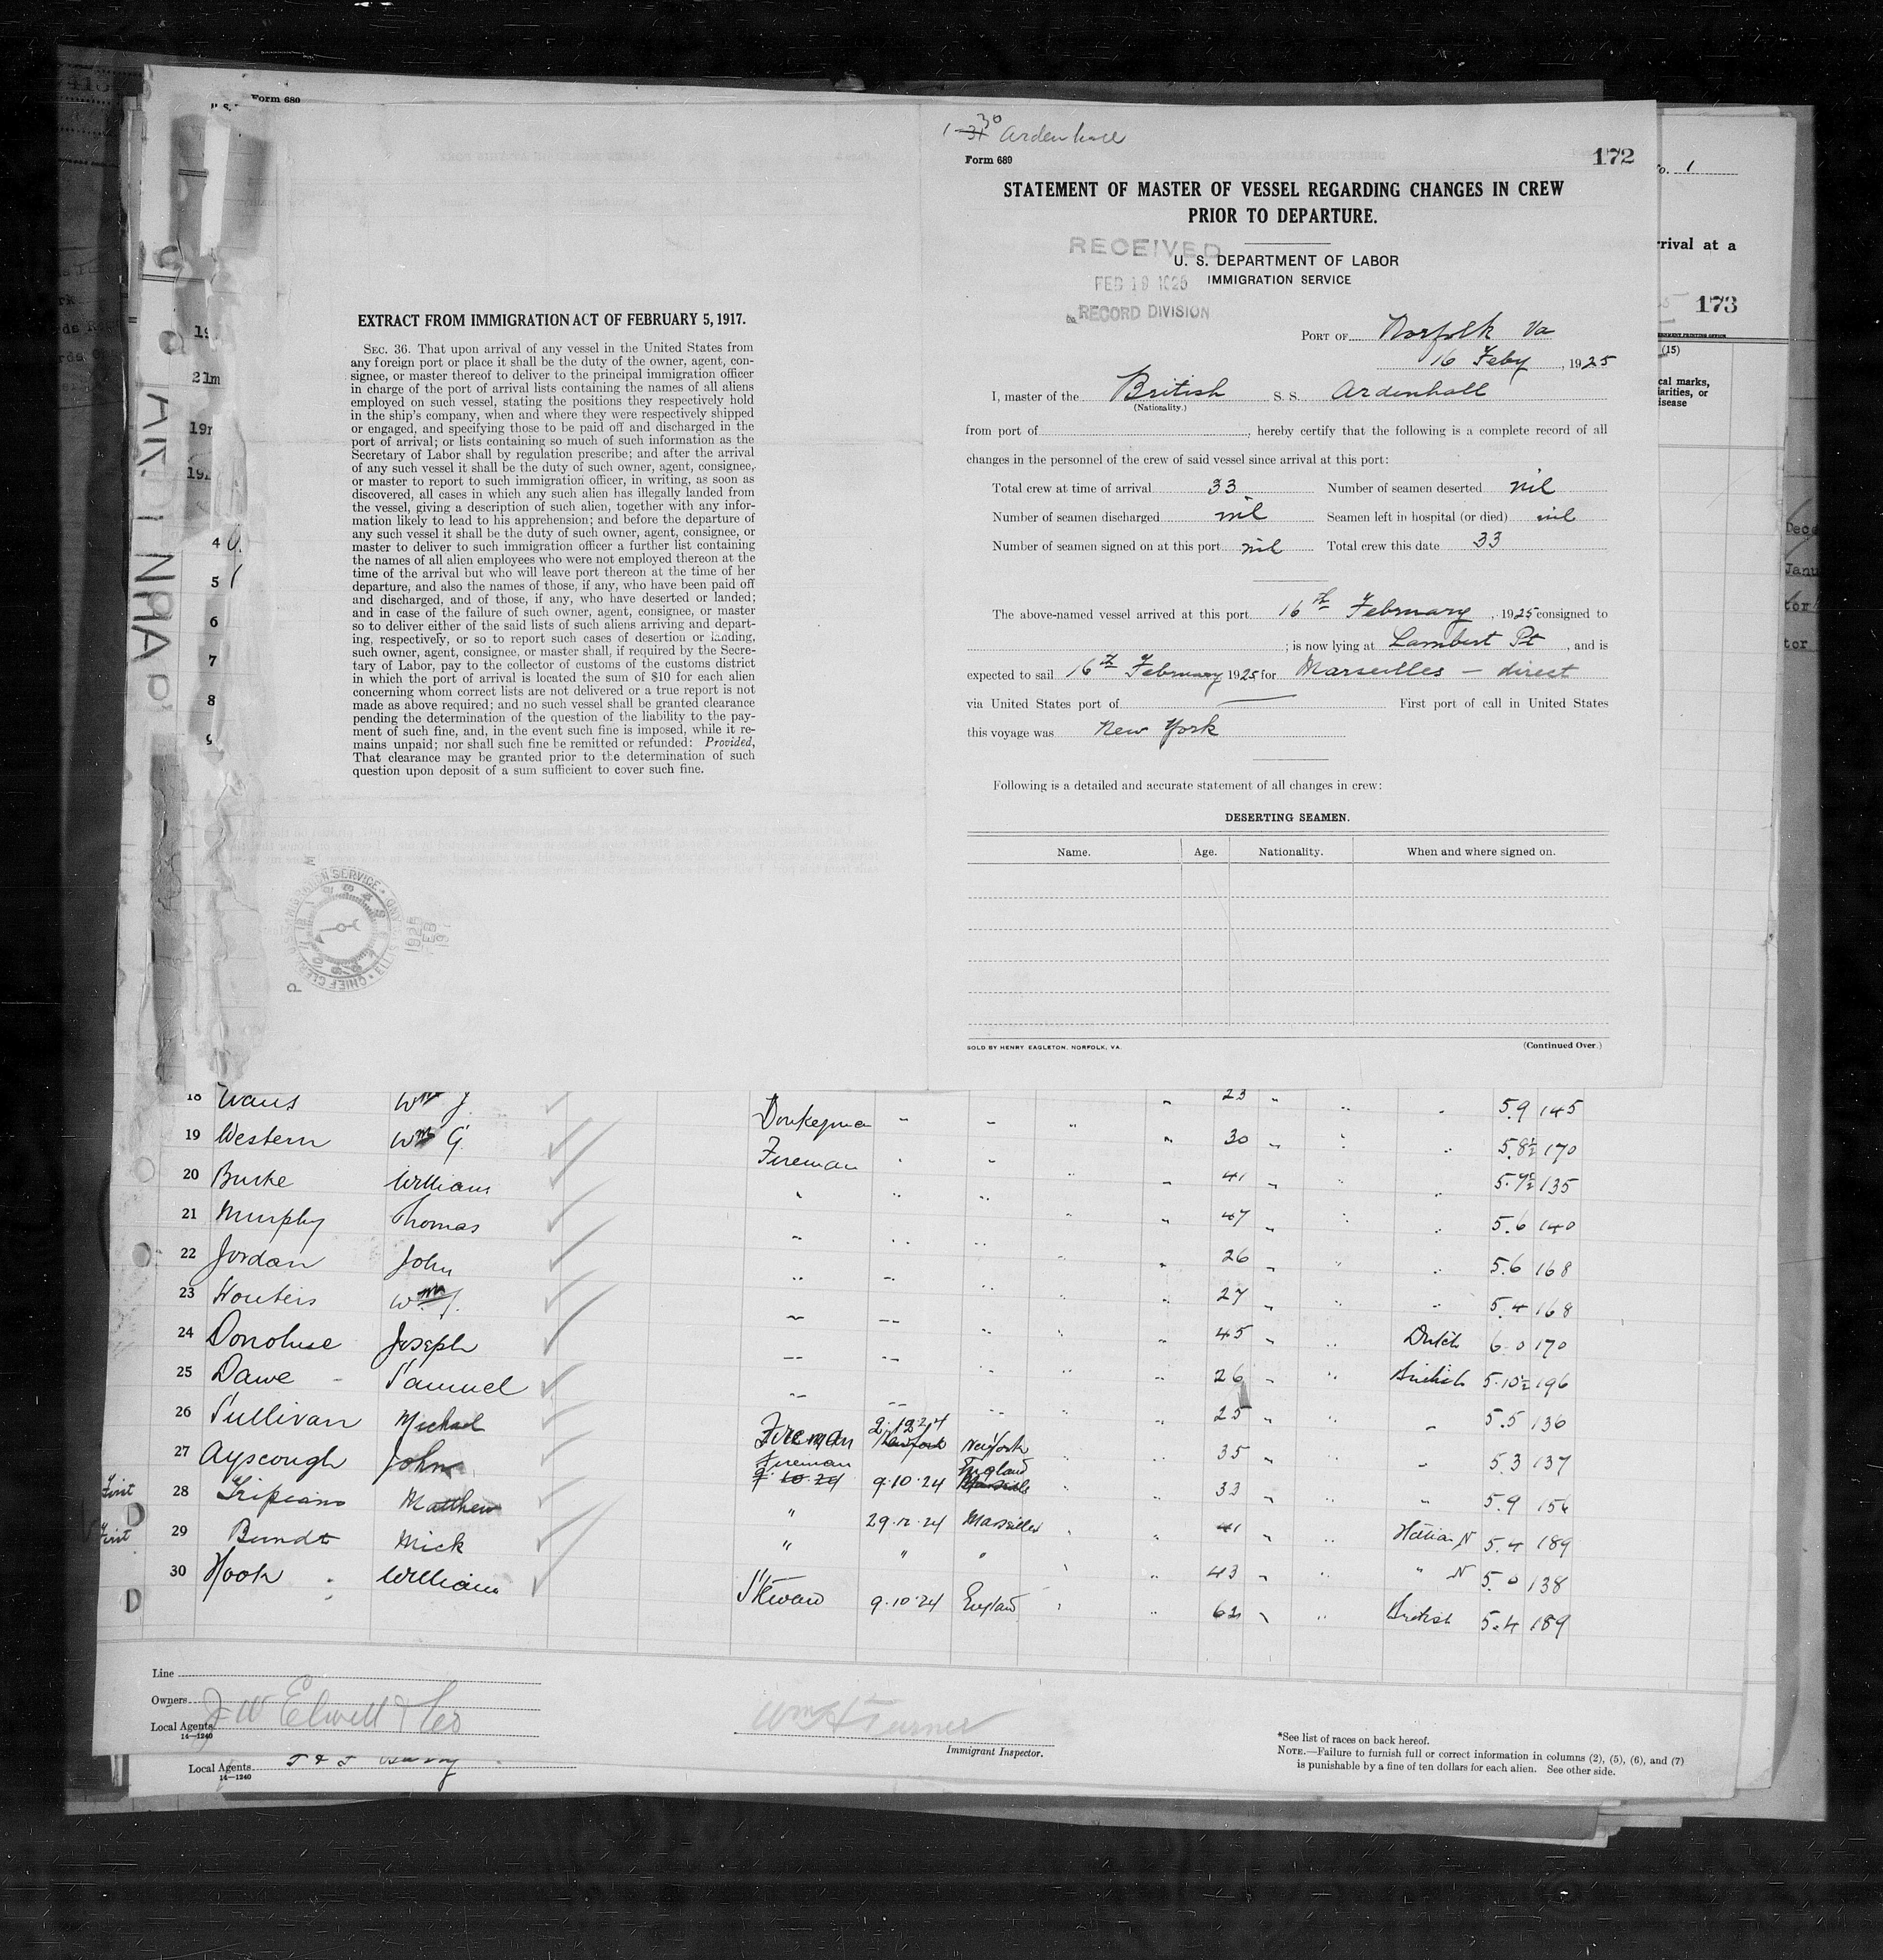 Form 680
EXTRACT FROM IMMIGRATION ACT OF FEBRUARY 5, 1917.
SEC. 36. That upon arrival of any vessel in the United States from
any foreign port or place it shall be the duty of the owner, agent, con-
signee, or master thereof to deliver to the principal immigration officer
in charge of the port of arrival lists containing the names of all aliens
employed on such vessel, stating the positions they respectively hold
in the ship's company, when and where they were respectively shipped
or engaged, and specifying those to be paid off and discharged in the
port of arrival; or lists containing so much of such information as the
Secretary of Labor shall by regulation prescribe; and after the arrival
of any such vessel it shall be the duty of such owner, agent, consignee,
or master to report to such immigration officer, in writing, as soon as
discovered, all cases in which any such alien has illegally landed from
the vessel, giving a description of such alien, together with any infor-
mation likely to lead to his apprehension; and before the departure of
any such vessel it shall be the duty of such owner, agent, consignee, or
master to deliver to such immigration officer a further list containing
the names of all alien employees who were not employed thereon at the
time of the arrival but who will leave port thereon at the time of her
departure, and also the names of those, if any, who have been paid off
and discharged, and of those, if any, who have deserted or landed;
and in case of the failure of such owner, agent, consignee, or master
so to deliver either of the said lists of such aliens arriving and depart-
ing, respectively, or so to report such cases of desertion or landing,
such owner, agent, consignee, or master shall, if required by the Secre-
tary of Labor, pay to the collector of customs of the customs district
in which the port of arrival is located the sum of $10 for each alien
concerning whom correct lists are not delivered or a true report is not
made as above required; and no such vessel shall be granted clearance
pending the determination of the question of the liability to the pay-
ment of such fine, and, in the event such fine is imposed, while it re-
mains unpaid; nor shall such fine be remitted or refunded: Provided,
That clearance may be granted prior to the determination of such
question upon deposit of a sum sufficient to cover such fine.
1-31 30 Ardenhall
Form 689
172
STATEMENT OF MASTER OF VESSEL REGARDING CHANGES IN CREW
PRIOR TO DEPARTURE.
RECEIVED
U. S. DEPARTMENT OF LABOR
FEB 19 1925 IMMIGRATION SERVICE
RECORD DIVISION
PORT OF Norfolk Va
16 Feby, 1925
I, master of the British S. S. Ardenhall
(Nationality.)
from port of , hereby certify that the following is a complete record of all
changes in the personnel of the crew of said vessel since arrival at this port:
Total crew at time of arrival 33 Number of seamen deserted nil
Number of seamen discharged nil Seamen left in hospital (or died) nil
Number of seamen signed on at this port nil Total crew this date 33
The above-named vessel arrived at this port 16th February, 1925 consigned to
; is now lying at Lambert Pt, and is
expected to sail 16th February 1925 for Marseilles — direct
via United States port of — First port of call in United States
this voyage was New York
Following is a detailed and accurate statement of all changes in crew:
DESERTING SEAMEN.
Name. Age. Nationality. When and where signed on.
SOLD BY HENRY EAGLETON, NORFOLK, VA. (Continued Over.)
No. 1
rrival at a
173
(15)
cal marks,
iarities, or
isease
18 Evans Wm J. Donkeyman 23 5.9 145
19 Western Wm G. Fireman 30 5.8½ 170
20 Burke William 41 135
21 Murphy Thomas 47 5.6 140
22 Jordan John 26 5.6 168
23 Wouters Wm J. 27 5.4 168
24 Donohue Joseph 45 Dutch 6.0 170
25 Dawe Samuel 26 British 5.10½ 196
26 Sullivan Michael Fireman New York 25 5.5 136
27 Ayscough John Fireman 9.10.24 England 35 5.3 137
28 Matthew " 29.12.24 Marseilles 33 5.9 156
29 Bundt Mick " " " 41 Italian N 5.4 189
43 " N 5.0 138
30 Hook William Steward 9.10.24 England 62 British 5.4 189
First
D
First
D
Line
Owners
Local Agents J W Elwell & Co
14—1240
Wm H Turner
Immigrant Inspector.
*See list of races on back hereof.
NOTE.—Failure to furnish full or correct information in columns (2), (5), (6), and (7)
is punishable by a fine of ten dollars for each alien. See other side.
Local Agents
14—1240